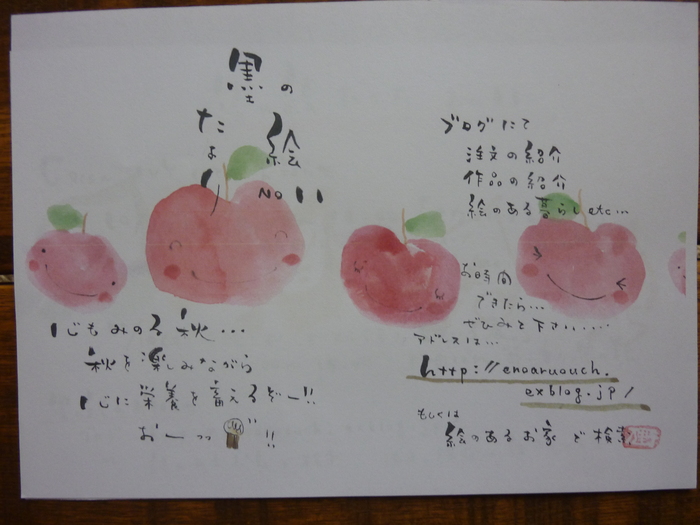 黒の
絵
たより
NO11
心もみのる 秋…
秋を楽しみながら
心に栄養を蓄えるぞー!!
おーっ !!
ブログにて
注文の紹介
作品の紹介
絵のある暮らし etc…
お時間
できたら…
ぜひみて下さい……
アドレスは…
http://enoaruouch.
exblog.jp/
もしくは
絵のあるお家 で検索